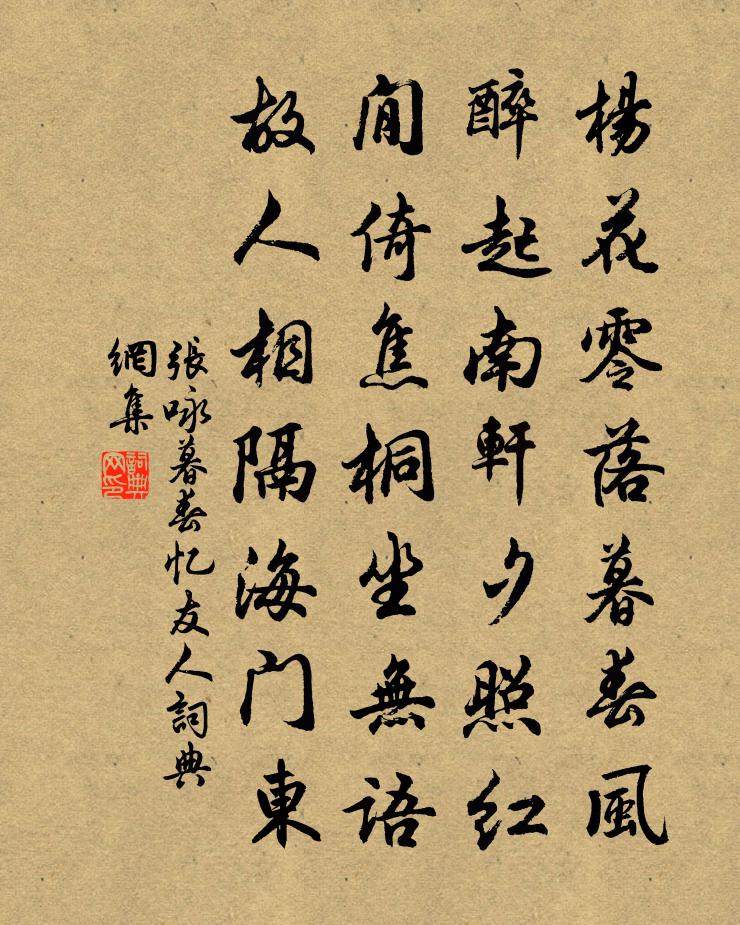 楊花零落暮春風
醉起南軒夕照红
閒倚焦桐坐無語
故人相隔海门東
張咏暮春忆友人詞典
網集
詞典网印